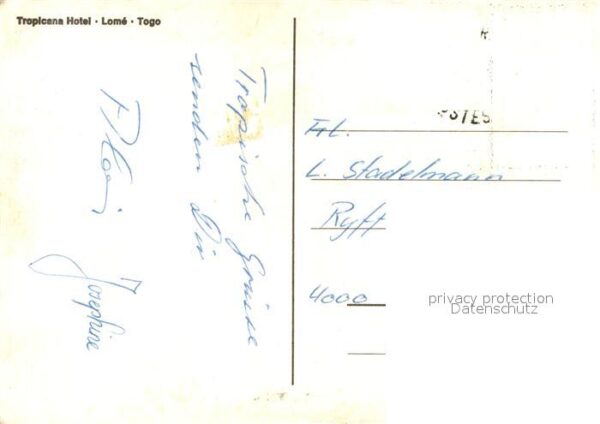 Tropicana Hotel · Lomé · Togo
Tropische Grüsse
senden Dir
Josephine
Frl.
L. Stadelmann
Ryff
4000
privacy protection
Datenschutz